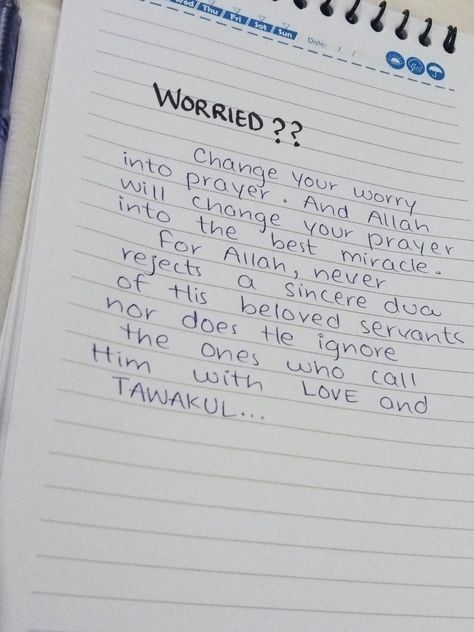 Wed / Thu / Fri / Sat / Sun
Date: / /
WORRIED ??
Change your worry
into prayer. And Allah
will change your prayer
into the best miracle.
For Allah, never
rejects a sincere dua
of His beloved servants
nor does He ignore
the ones who call
Him with LOVE and
TAWAKUL...